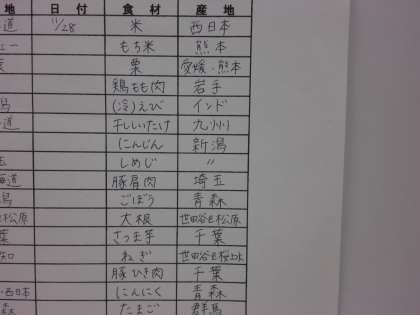 地 日付 食材 産地
道 11/28 米 西日本
もち米 熊本
栗 愛媛・熊本
鶏もも肉 岩手
(冷)えび インド
道 干ししいたけ 九州
にんじん 新潟
玉 しめじ 〃
海道 豚肩肉 埼玉
ごぼう 青森
松原 大根 世田谷区松原
葉 さつま芋 千葉
知 ねぎ 世田谷区桜上水
豚ひき肉 千葉
・西日本 にんにく 青森
森 たまご 群馬